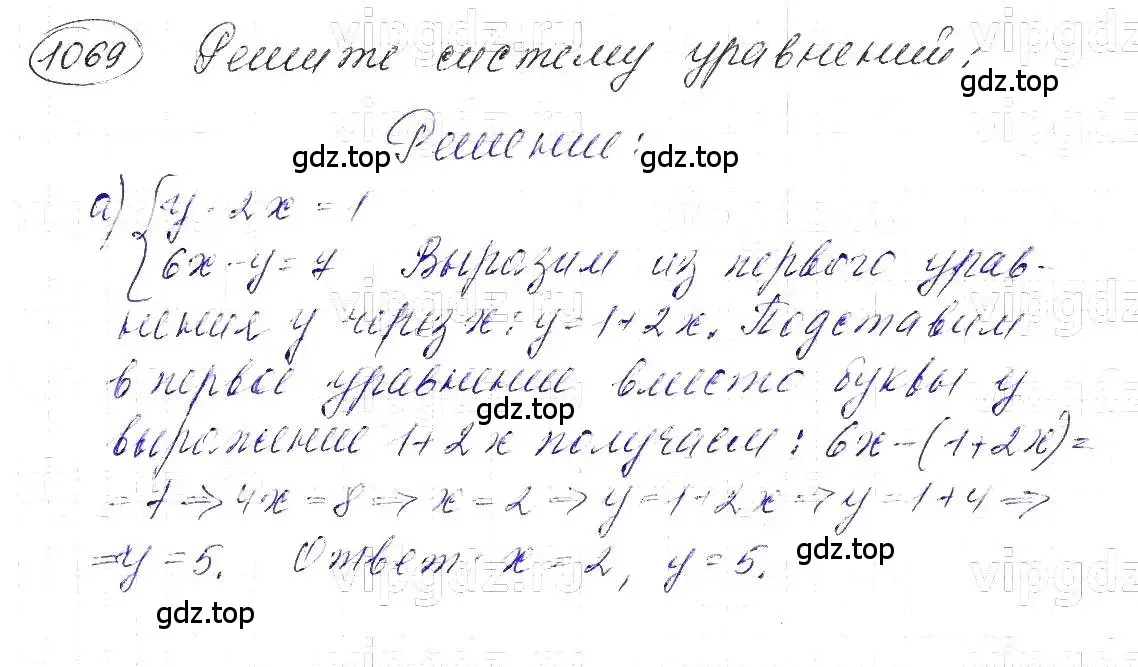 1069 Решите систему уравнений:
gdz.top
Решение:
gdz.top gdz.top
а) { y - 2x = 1
6x - y = 7 Выразим из первого урав-
нения y через x: y = 1 + 2x. Подставим
в первое уравнение вместо буквы y
gdz.top
выражение 1 + 2x получаем: 6x - (1 + 2x) =
= 7 ⇒ 4x = 8 ⇒ x = 2 ⇒ y = 1 + 2x ⇒ y = 1 + 4 ⇒
⇒ y = 5. Ответ: x = 2, y = 5.
gdz.top
gdz.top